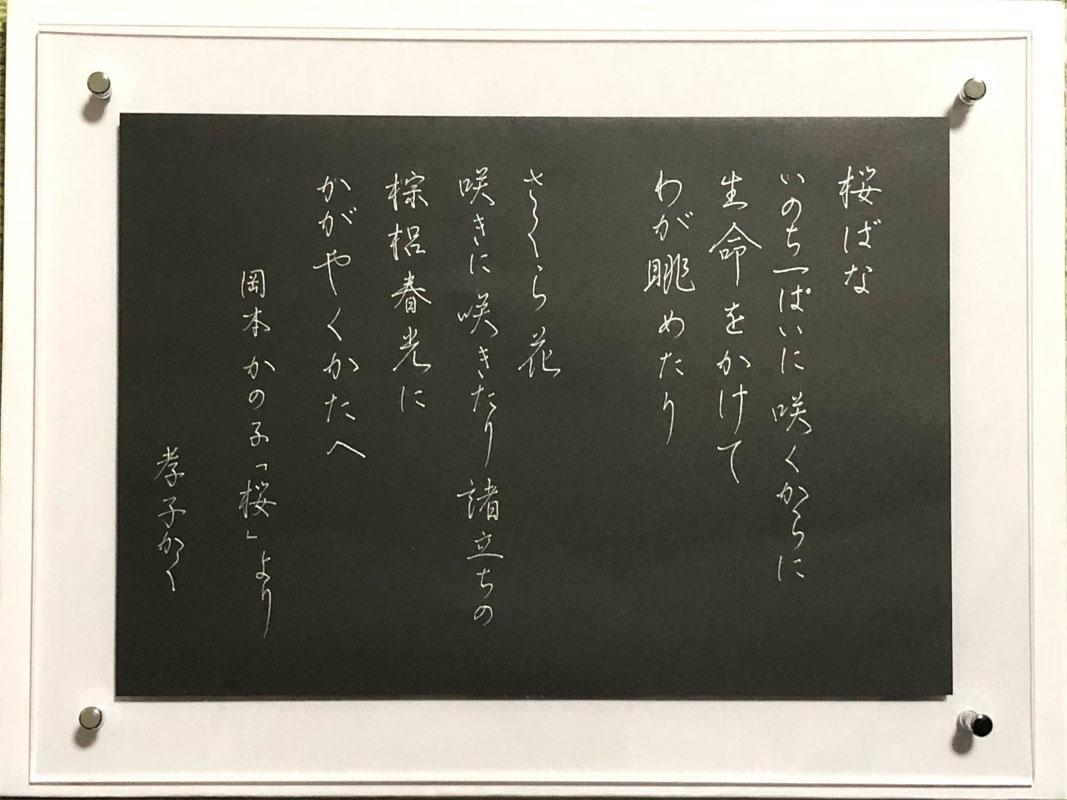 桜ばな
いのち一ぱいに咲くからに
生命をかけて
わが眺めたり
さくら花
咲きに咲きたり諸立ちの
棕梠春光に
かがやくかたへ
岡本かの子「桜」より
孝子かく